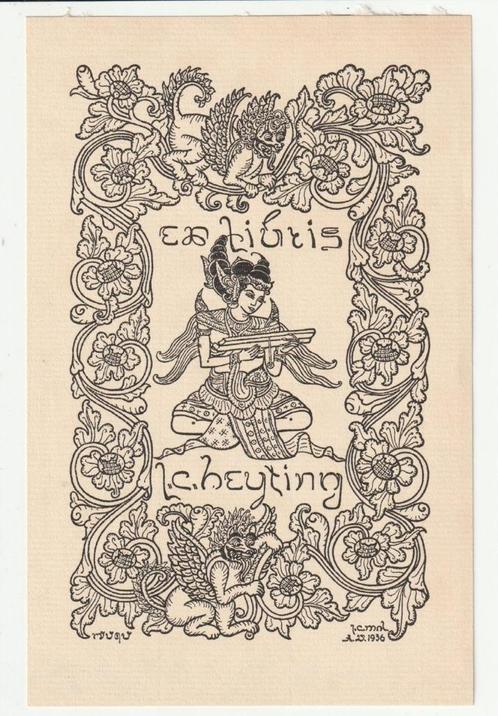 ex libris
l.c.heyting
A.D. 1936